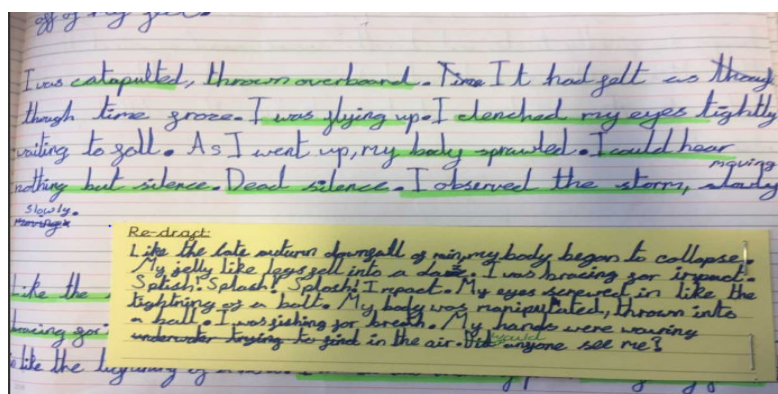 off of my
I was catapulted, thrown overboard. Time It had felt as though
though time froze. I was flying up. I clenched my eyes tightly
waiting to fall. As I went up, my body sprawled. I could hear
moving
nothing but silence. Dead silence. I observed the storm, slowly
slowly.
moving
Re-draft:
Like the late autumn downfall of rain, my body began to collapse.
My jelly like legs fell into a . I was bracing for impact.
Splish! Splash! Splosh! Impact. My eyes screwed in like the
tightning of a bolt. My body was manipulated, thrown into
a ball. I was fishing for breath. My hands were waving
underwater trying to find in the air. Did could anyone see me?
Like the
bracing for
is like the